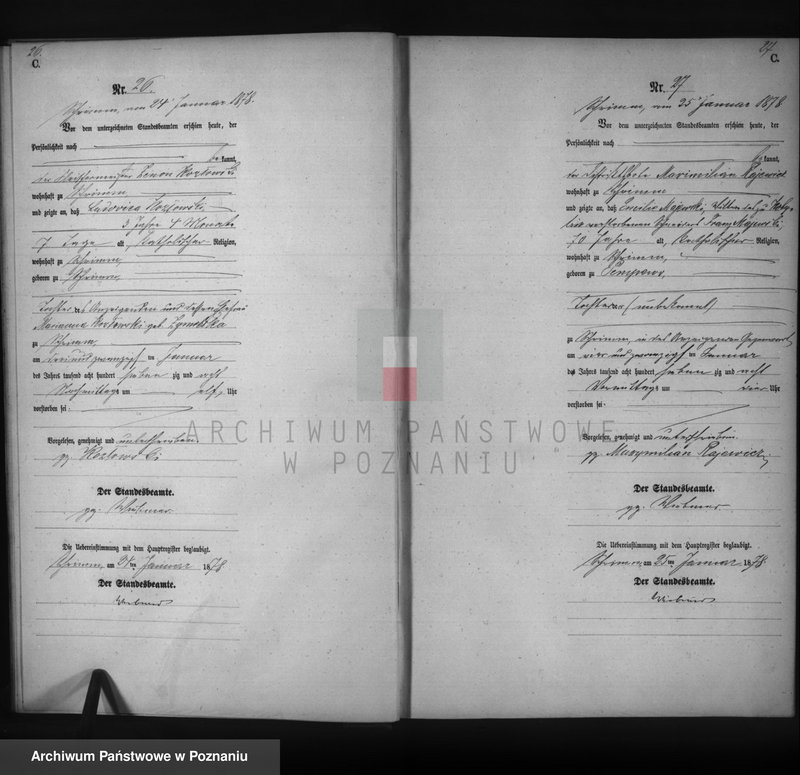 26.
C.
Nr. 26.
Schrimm, am 24ten Januar 1878.
Vor dem unterzeichneten Standesbeamten erschien heute, der
Persönlichkeit nach
be kannt,
der Zenon Kozlowski
wohnhaft zu Schrimm
und zeigte an, daß Ludovica Kozlowski
3 Jahre 4 Monate
7 Tage alt, katholischer Religion,
wohnhaft zu Schrimm,
geboren zu Schrimm,
Tochter des Anzeigenden und dessen Ehefrau
Marianna Kozlowski geb.
zu Schrimm,
am drei und zwanzigsten Januar
des Jahres tausend acht hundert sieben zig und acht
Nachmittags um elf Uhr
verstorben sei
Vorgelesen, genehmigt und unterschrieben.
gz. Kozlowski
Der Standesbeamte.
gz.
Die Uebereinstimmung mit dem Hauptregister beglaubigt.
Schrimm, am 24ten Januar 1878
Der Standesbeamte.
27.
C.
Nr. 27
Schrimm, am 25ten Januar 1878
Vor dem unterzeichneten Standesbeamten erschien heute, der
Persönlichkeit nach
be kannt,
der Maximilian Rajewicz
wohnhaft zu Schrimm
und zeigte an, daß Emilie Majewski,
verstorbenen Franz Majewski,
70 Jahre alt, katholischer Religion,
wohnhaft zu Schrimm,
geboren zu
Tochter (unbekannt)
zu Schrimm, in des Anzeigenden Gegenwart
am vier und zwanzigsten Januar
des Jahres tausend acht hundert sieben zig und acht
Vormittags um vier Uhr
verstorben sei
Vorgelesen, genehmigt und unterschrieben.
gz. Maxymilian Rajewicz
Der Standesbeamte.
gz.
Die Uebereinstimmung mit dem Hauptregister beglaubigt.
Schrimm, am 25ten Januar 1878
Der Standesbeamte.
ARCHIWUM PAŃSTWOWE
W POZNANIU
Archiwum Państwowe w Poznaniu